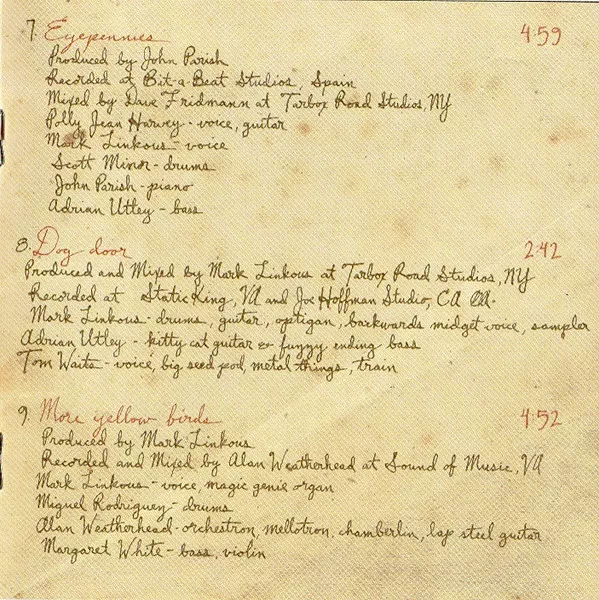 7. Eyepennies 4:59
Produced by John Parish
Recorded at Bit-a-Beat Studios, Spain
Mixed by Dave Fridmann at Tarbox Road Studios, NY
Polly Jean Harvey - voice, guitar
Mark Linkous - voice
Scott Minor - drums
John Parish - piano
Adrian Utley - bass
8. Dog door 2:42
Produced and Mixed by Mark Linkous at Tarbox Road Studios, NY
Recorded at Static King, VA and Joe Hoffman Studio, CA
Mark Linkous - drums, guitar, optigan, backwards midget voice, sampler
Adrian Utley - kitty cat guitar & funny ending bass
Tom Waits - voice, big seed pod, metal things, train
9. More yellow birds 4:52
Produced by Mark Linkous
Recorded and Mixed by Alan Weatherhead at Sound of Music, VA
Mark Linkous - voice, magic genie organ
Miguel Rodriguez - drums
Alan Weatherhead - orchestron, mellotron, chamberlin, lap steel guitar
Margaret White - bass, violin